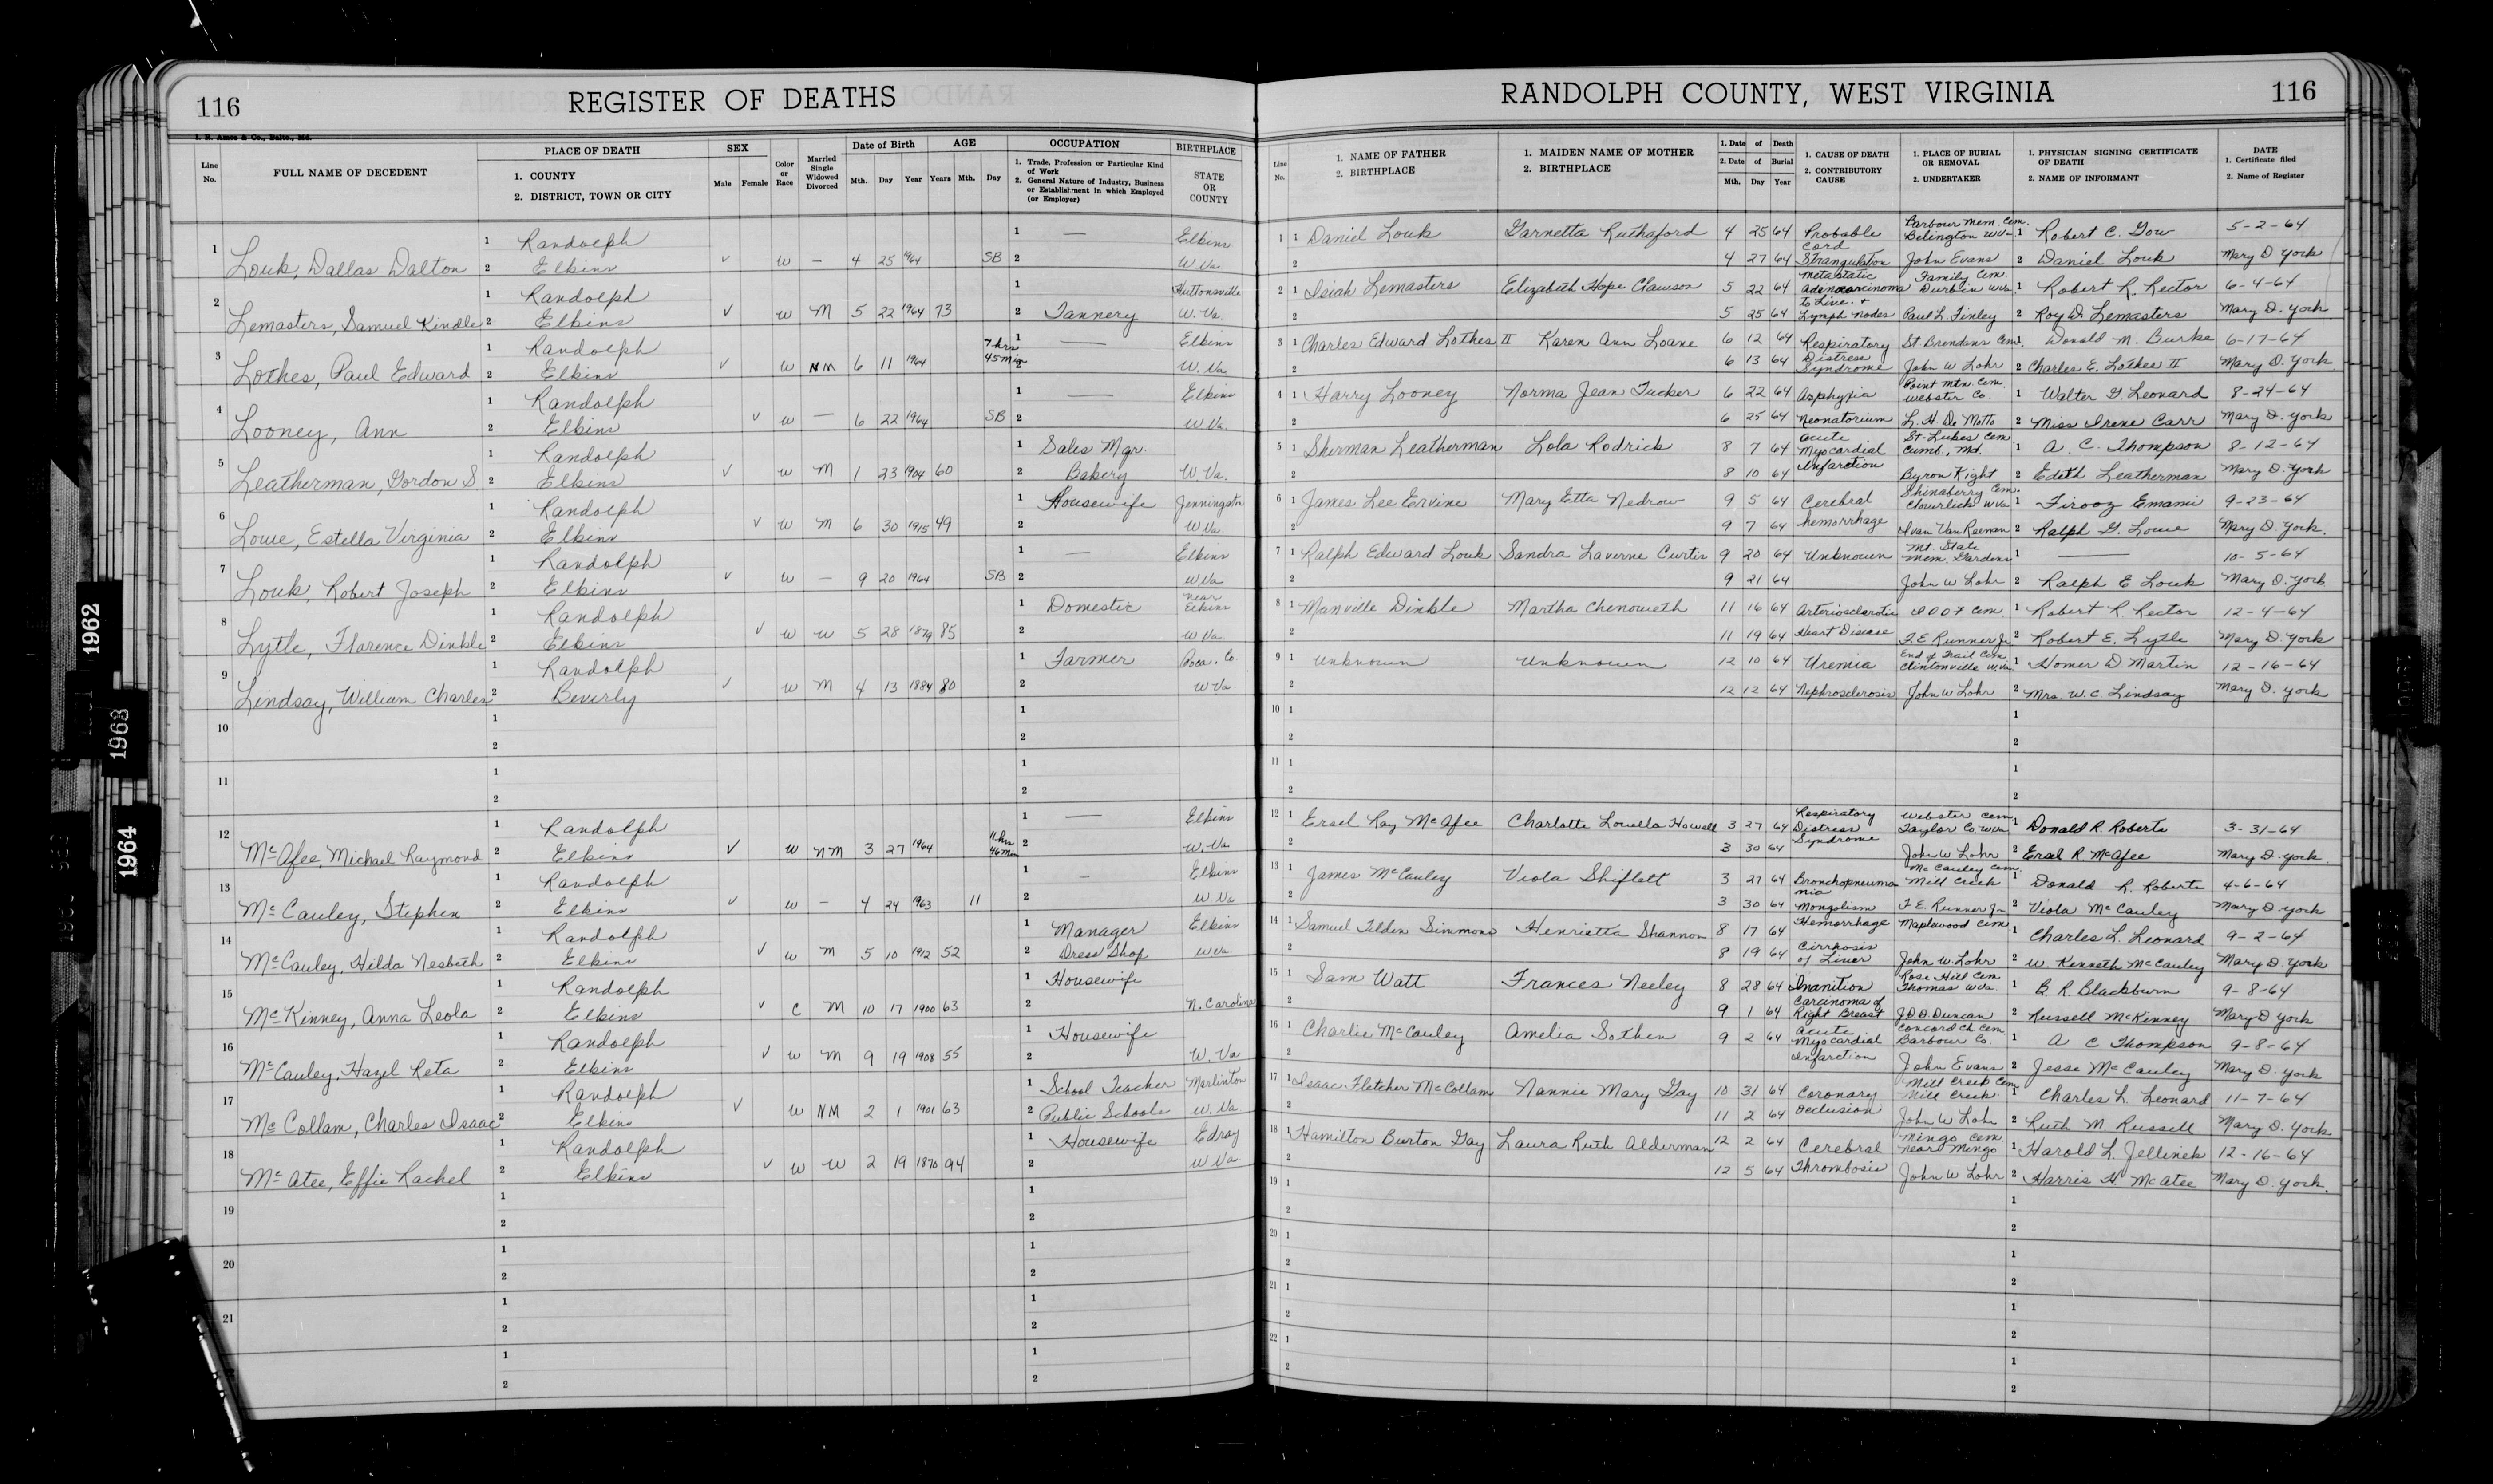 116 REGISTER OF DEATHS
RANDOLPH COUNTY, WEST VIRGINIA 116
Line No. FULL NAME OF DECEDENT PLACE OF DEATH 1. COUNTY 2. DISTRICT, TOWN OR CITY SEX Male Female Color or Race Married Single Widowed Divorced Date of Birth Mth. Day Year AGE Years Mth. Day OCCUPATION 1. Trade, Profession or Particular Kind of Work 2. General Nature of Industry, Business or Establishment in which Employed (or Employer) BIRTHPLACE STATE OR COUNTY
Line No. 1. NAME OF FATHER 2. BIRTHPLACE 1. MAIDEN NAME OF MOTHER 2. BIRTHPLACE 1. Date of Death 2. Date of Burial Mth. Day Year 1. CAUSE OF DEATH 2. CONTRIBUTORY CAUSE 1. PLACE OF BURIAL OR REMOVAL 2. UNDERTAKER 1. PHYSICIAN SIGNING CERTIFICATE OF DEATH 2. NAME OF INFORMANT DATE 1. Certificate filed 2. Name of Register
1 Louk, Dallas Dalton 1 Randolph 2 Elkins ✓ W — 4 25 1964 SB 1 — 2 Elkins W Va
1 1 Daniel Louk Garnetta Ruthaford 4 25 64 Probable Cord Strangulation Barbour Mem. Cem. Belington W Va 1 Robert C. Gow 5-2-64
2 4 27 64 John Evans 2 Daniel Louk Mary D York
2 Lemasters, Samuel Kindle 1 Randolph 2 Elkins ✓ W M 5 22 1964 73 1 2 Tannery Huttonsville W. Va.
2 1 Isiah Lemasters Elizabeth Hope Clawson 5 22 64 Metastatic adenocarcinoma to Live. + Lymph nodes Family Cem. Durbin W Va 1 Robert R. Rector 6-4-64
2 5 25 64 Paul L. Finley 2 Roy D. Lemasters Mary D. York
3 Lothes, Paul Edward 1 Randolph 2 Elkins ✓ W NM 6 11 1964 7 hrs 45 min 1 — 2 Elkins W. Va
3 1 Charles Edward Lothes II Karen Ann Loane 6 12 64 Respiratory Distress Syndrome St Brendans Cem. 1 Donald M. Burke 6-17-64
2 6 13 64 John W Lohr 2 Charles E. Lothes II Mary D. York
4 Looney, Ann 1 Randolph 2 Elkins ✓ W — 6 22 1964 SB 1 — 2 Elkins W Va.
4 1 Harry Looney Norma Jean Tucker 6 22 64 Asphyxia Point Mtn. Cem. Webster Co. 1 Walter G. Leonard 8-24-64
2 6 25 64 Neonatorium L. H. De Motto 2 Miss Irene Carr Mary D. York
5 Leatherman, Gordon S 1 Randolph 2 Elkins ✓ W M 1 23 1904 60 1 Sales Mgr. 2 Bakery W Va.
5 1 Sherman Leatherman Lola Rodrick 8 7 64 Acute Myocardial Infarction St-Lukes Cem Cumb., Md. 1 A. C. Thompson 8-12-64
2 8 10 64 Byron Kight 2 Edith Leatherman Mary D. York
6 Lowe, Estella Virginia 1 Randolph 2 Elkins ✓ W M 6 30 1915 49 1 Housewife 2 Jennington W Va.
6 1 James Lee Ervine Mary Etta Nedrow 9 5 64 Cerebral hemorrhage Shinaberry Cem. Cloverlick W Va 1 Firooz Emami 9-23-64
2 9 7 64 Ivan Van Reenan 2 Ralph G. Lowe Mary D. York.
7 Louk, Robert Joseph 1 Randolph 2 Elkins ✓ W — 9 20 1964 SB 1 — 2 Elkins W Va
7 1 Ralph Edward Louk Sandra Laverne Curtis 9 20 64 Unknown Mt. State Mem. Gardens 1 — 10-5-64
2 9 21 64 John W Lohr 2 Ralph E Louk Mary D. York
8 Lytle, Florence Dinkle 1 Randolph 2 Elkins ✓ W W 5 28 1879 85 1 Domestic 2 Near Elkins W Va.
8 1 Manville Dinkle Martha Chenoweth 11 16 64 Arteriosclerotic Heart Disease I O O F Cem. 1 Robert R. Rector 12-4-64
2 11 19 64 F. E. Runner Jr 2 Robert E. Lytle Mary D. York
9 Lindsay, William Charles 1 Randolph 2 Beverly ✓ W M 4 13 1884 80 1 Farmer 2 Poca. Co. W Va
9 1 Unknown Unknown 12 10 64 Uremia End of Trail Cem Clintonville W. Va 1 Homer D Martin 12-16-64
2 12 12 64 Nephrosclerosis John W Lohr 2 Mrs. W. C. Lindsay Mary D. York
10 1 2
11 1 2
12 McAfee, Michael Raymond 1 Randolph 2 Elkins ✓ W NM 3 27 1964 11 hrs 46 Min 1 — 2 Elkins W. Va
12 1 Ersel Ray McAfee Charlotte Louella Howell 3 27 64 Respiratory Distress Syndrome Webster Cem Taylor Co. W Va 1 Donald R. Roberts 3-31-64
2 3 30 64 John W Lohr 2 Ersel R. McAfee Mary D. York.
13 McCauley, Stephen 1 Randolph 2 Elkins ✓ W — 4 24 1963 11 1 — 2 Elkins W Va
13 1 James McCauley Viola Shiflett 3 27 64 Bronchopneumonia McCauley Cem. Mill Creek 1 Donald R. Roberts 4-6-64
2 3 30 64 Mongolism F. E. Runner Jr. 2 Viola McCauley Mary D York
14 McCauley, Hilda Nesbeth 1 Randolph 2 Elkins ✓ W M 5 10 1912 52 1 Manager 2 Dress Shop Elkins W Va
14 1 Samuel Tilden Simmons Henrietta Shannon 8 17 64 Hemorrhage Maplewood Cem. 1 Charles L. Leonard 9-2-64
2 8 19 64 Cirrhosis of Liver John W. Lohr 2 W. Kenneth McCauley Mary D. York
15 McKinney, Anna Leola 1 Randolph 2 Elkins ✓ C M 10 17 1900 63 1 Housewife 2 N. Carolina
15 1 Sam Watt Frances Neeley 8 28 64 Inanition Rose Hill Cem Thomas W Va. 1 B. R. Blackburn 9-8-64
2 9 1 64 Carcinoma of Right Breast J. D. D. Duncan 2 Russell McKinney Mary D York
16 McCauley, Hazel Reta 1 Randolph 2 Elkins ✓ W M 9 19 1908 55 1 Housewife 2 W. Va
16 1 Charlie McCauley Amelia Sothen 9 2 64 Acute Myocardial Infarction Concord Ch Cem. Barbour Co. 1 A C Thompson 9-8-64
2 John Evans 2 Jesse McCauley Mary D. York
17 McCollam, Charles Isaac 1 Randolph 2 Elkins ✓ W NM 2 1 1901 63 1 School Teacher 2 Public Schools Marlinton W. Va
17 1 Isaac Fletcher McCollam Nannie Mary Gay 10 31 64 Coronary Occlusion Mill Creek Cem Mill Creek. 1 Charles L. Leonard 11-7-64
2 11 2 64 John W Lohr 2 Ruth M Russell Mary D. York
18 McAtee, Effie Rachel 1 Randolph 2 Elkins ✓ W W 2 19 1870 94 1 Housewife 2 Edray W Va
18 1 Hamilton Burton Gay Laura Ruth Alderman 12 2 64 Cerebral Thrombosis Mingo Cem. near Mingo 1 Harold L. Jellinek 12-16-64
2 12 5 64 John W Lohr 2 Harris H. McAtee Mary D. York.
19 1 2
20 1 2
21 1 2
22 1 2
1962
1963
1964